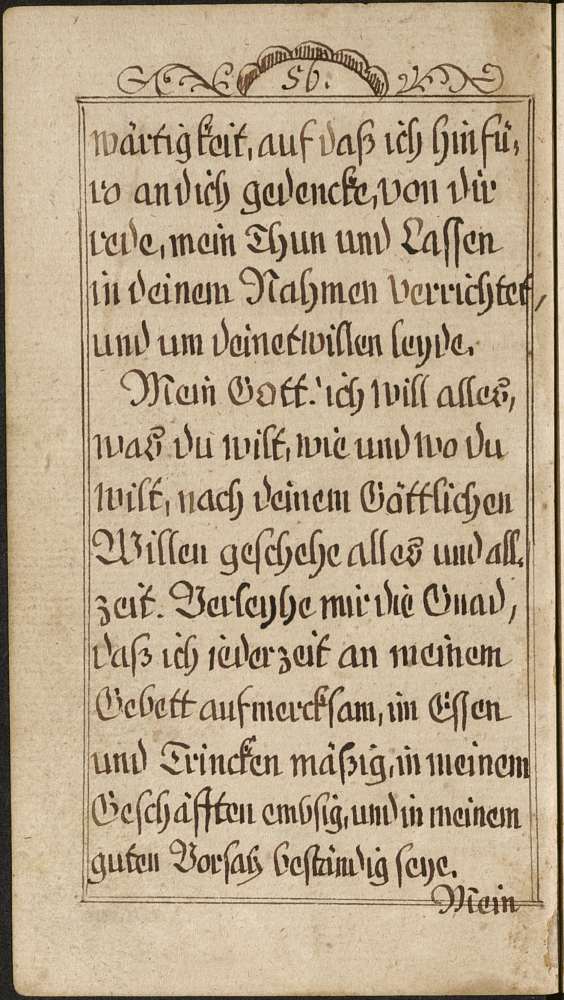 56.
wärtigkeit, auf daß ich hinfü,
ro an dich gedencke, von dir
rede, mein Thun und Lassen
in deinem Nahmen verrichtet,
und um deinetwillen leyde.
Mein Gott! ich will alles,
was du wilt, wie und wo du
wilt, nach deinem Göttlichen
Willen geschehe alles und all,
zeit. Verleyhe mir die Gnad,
daß ich jederzeit an meinem
Gebett aufmercksam, im Essen
und Trincken mäßig, in meinem
Geschäfften embsig, und in meinem
guten Vorsatz beständig seye.
Mein